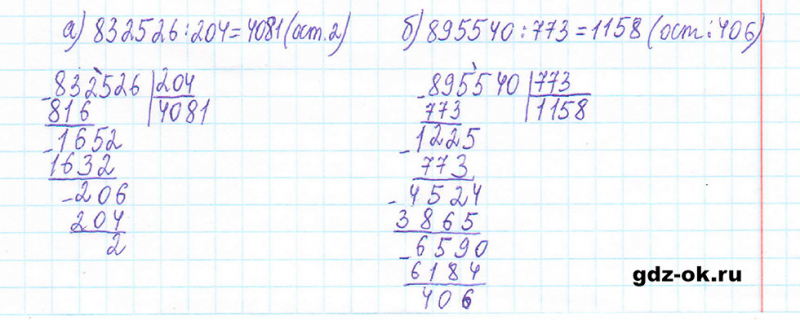 а) 832526:204=4081(ост.2)
832526 204
816 4081
1652
1632
206
204
2
б) 895540:773=1158(ост:406)
895540 773
773 1158
1225
773
4524
3865
6590
6184
406
gdz-ok.ru